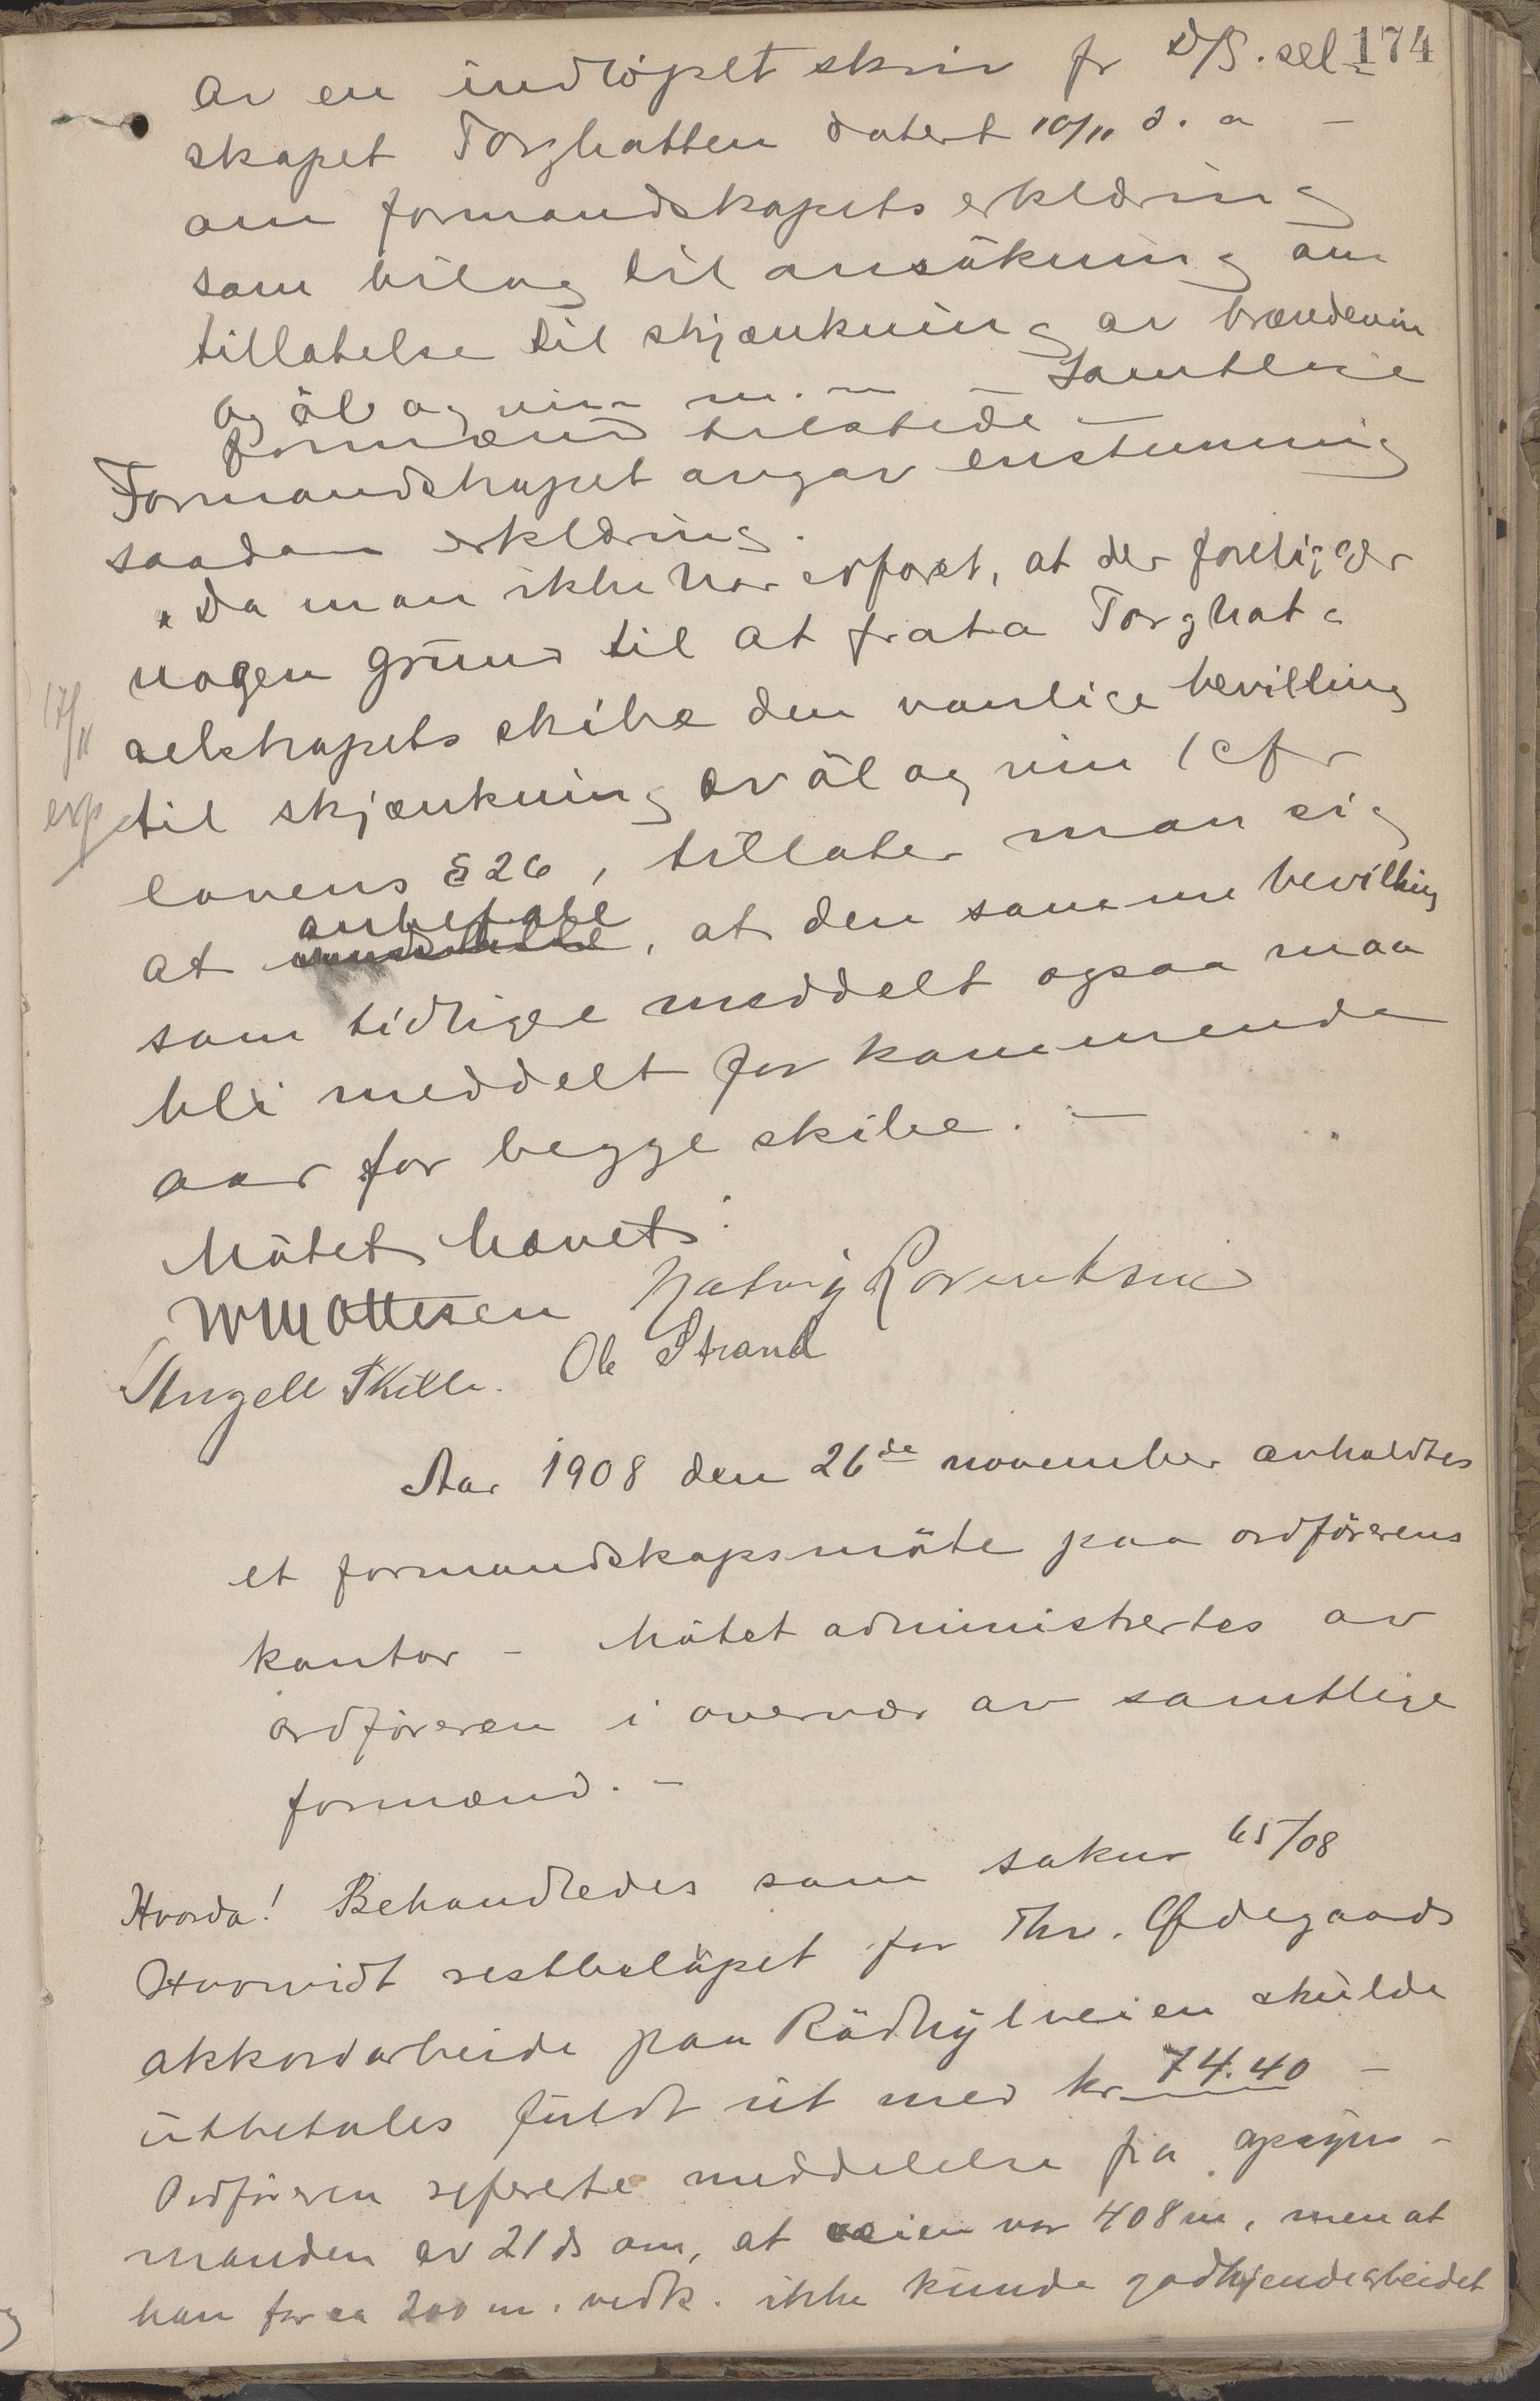 174
av en indløpet skriv fr D/S. sel-
skapet Torghatten datert 10/11 d. a –
om formandskapets erklæring
som bilag til ansøkning om
tillatelse til skjænkning av brændevin
og øl og vin m. m – Samtlige
formænd tilstede –
Formandskapet avgav enstemmig
saadan erklæring.
"Da man ikke har erfaret, at der foreligger
nogen grund til at frata Torghat-
selskapets skibe den vanlige bevilling
17/11
til skjænkning av øl og vin / cfr
exp
lovens § 26, tillater man sig
anbefale
at , at den samme bevilling
som tidligere meddelt ogsaa maa
bli meddelt for kommende
aar for begge skibe. –
Møtet hævet.
WMOttesen Hartvig Lorentsen
Angell Skille. Ole Strand
Aar 1908 den 26de november avholdtes
et formandskapsmøte paa ordførerens
kontor – Møtet administrertes av
ordføreren i overvær av samtlige
formænd. –
Hvorda! Behandledes som saknr 65/08
Hvorvidt restbeløpet for Thr. Ødegaards
akkordarbeide paa Rødhylveien skulde
utbetales fuldt ut med kr 74.40 –
Ordføreren refererte meddelelse fra opsyns-
manden av 21 ds om, at veien var 408 m, men at
han for ca 200 m. vedk. ikke kunde godkjende arbeidet